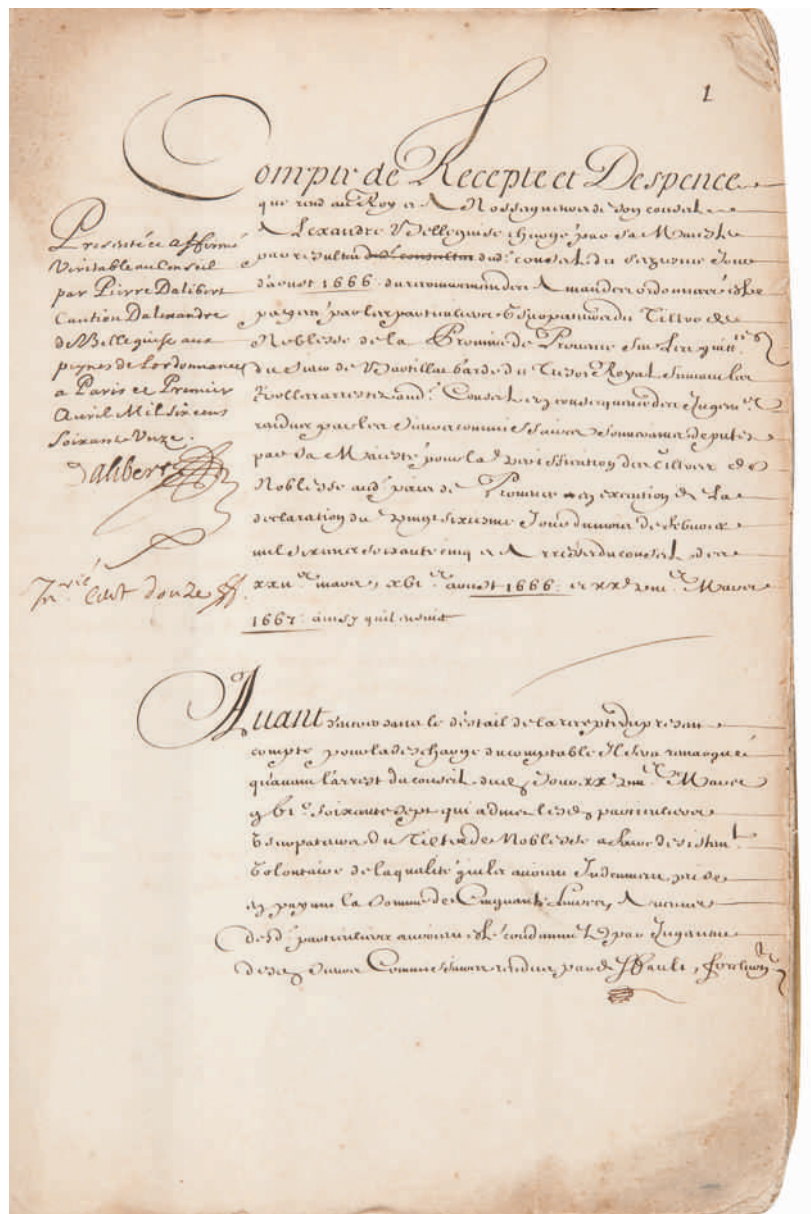 1
Compte de Recepte et Despence
que rend au Roy et A Nosseigneurs de son conseil
Alexandre Belleguise chargé par sa Maiesté
par resultat dud. conseil du seziesme Jour
d'aoust 1666. du recouurement des Amandes ordonnées estre
payées par les particuliers Usurpateurs du Tiltre de
Noblesse de la Prouince de Prouence Sur les quitt.ces
du Sieur de Bartillat garde du Tresor Royal Suiuant les
Rolles arrestez aud. Conseil en consequence des Jugem.s
rendus par les Sieurs commissaires deputez
par sa Maiesté pour la veriffication des Tiltres de
Noblesse aud. païs de Prouence en execution de La
declaration du vingt sixiesme Jour du mois de
mil six cens soixante cinq et Arrests du conseil des
xxii.e mars, xvi.e aoust 1666. et xx.e Mars
1667. ainsy quil ensuit
Presenté et affirmé
Veritable au Conseil
par Pierre Dalibert
Caution Dalexandre
de Belleguise aux
peynes de Lordonnance
a Paris ce Premier
Auril Mil six cens
soixante Unze.
Dalibert
cent douze ff.
Auant d'entrer dans le destail de la recepte du present
compte pour la descharge du comptable Il sera remarqué
qu'auant l'arrest du conseil dud. Jour xx.e Mars
soixante sept qui admet lesd. particuliers
Usurpateurs du Tiltre de Noblesse a faire desistem.t
Volontaire de la qualité quils auoient Induement prise
en payant la somme de Cinquante Liures, Aucuns
desd. particuliers auoient esté condamnez par Jugemens
desd. Sieurs Commissaires rendus par deffault, forclusion